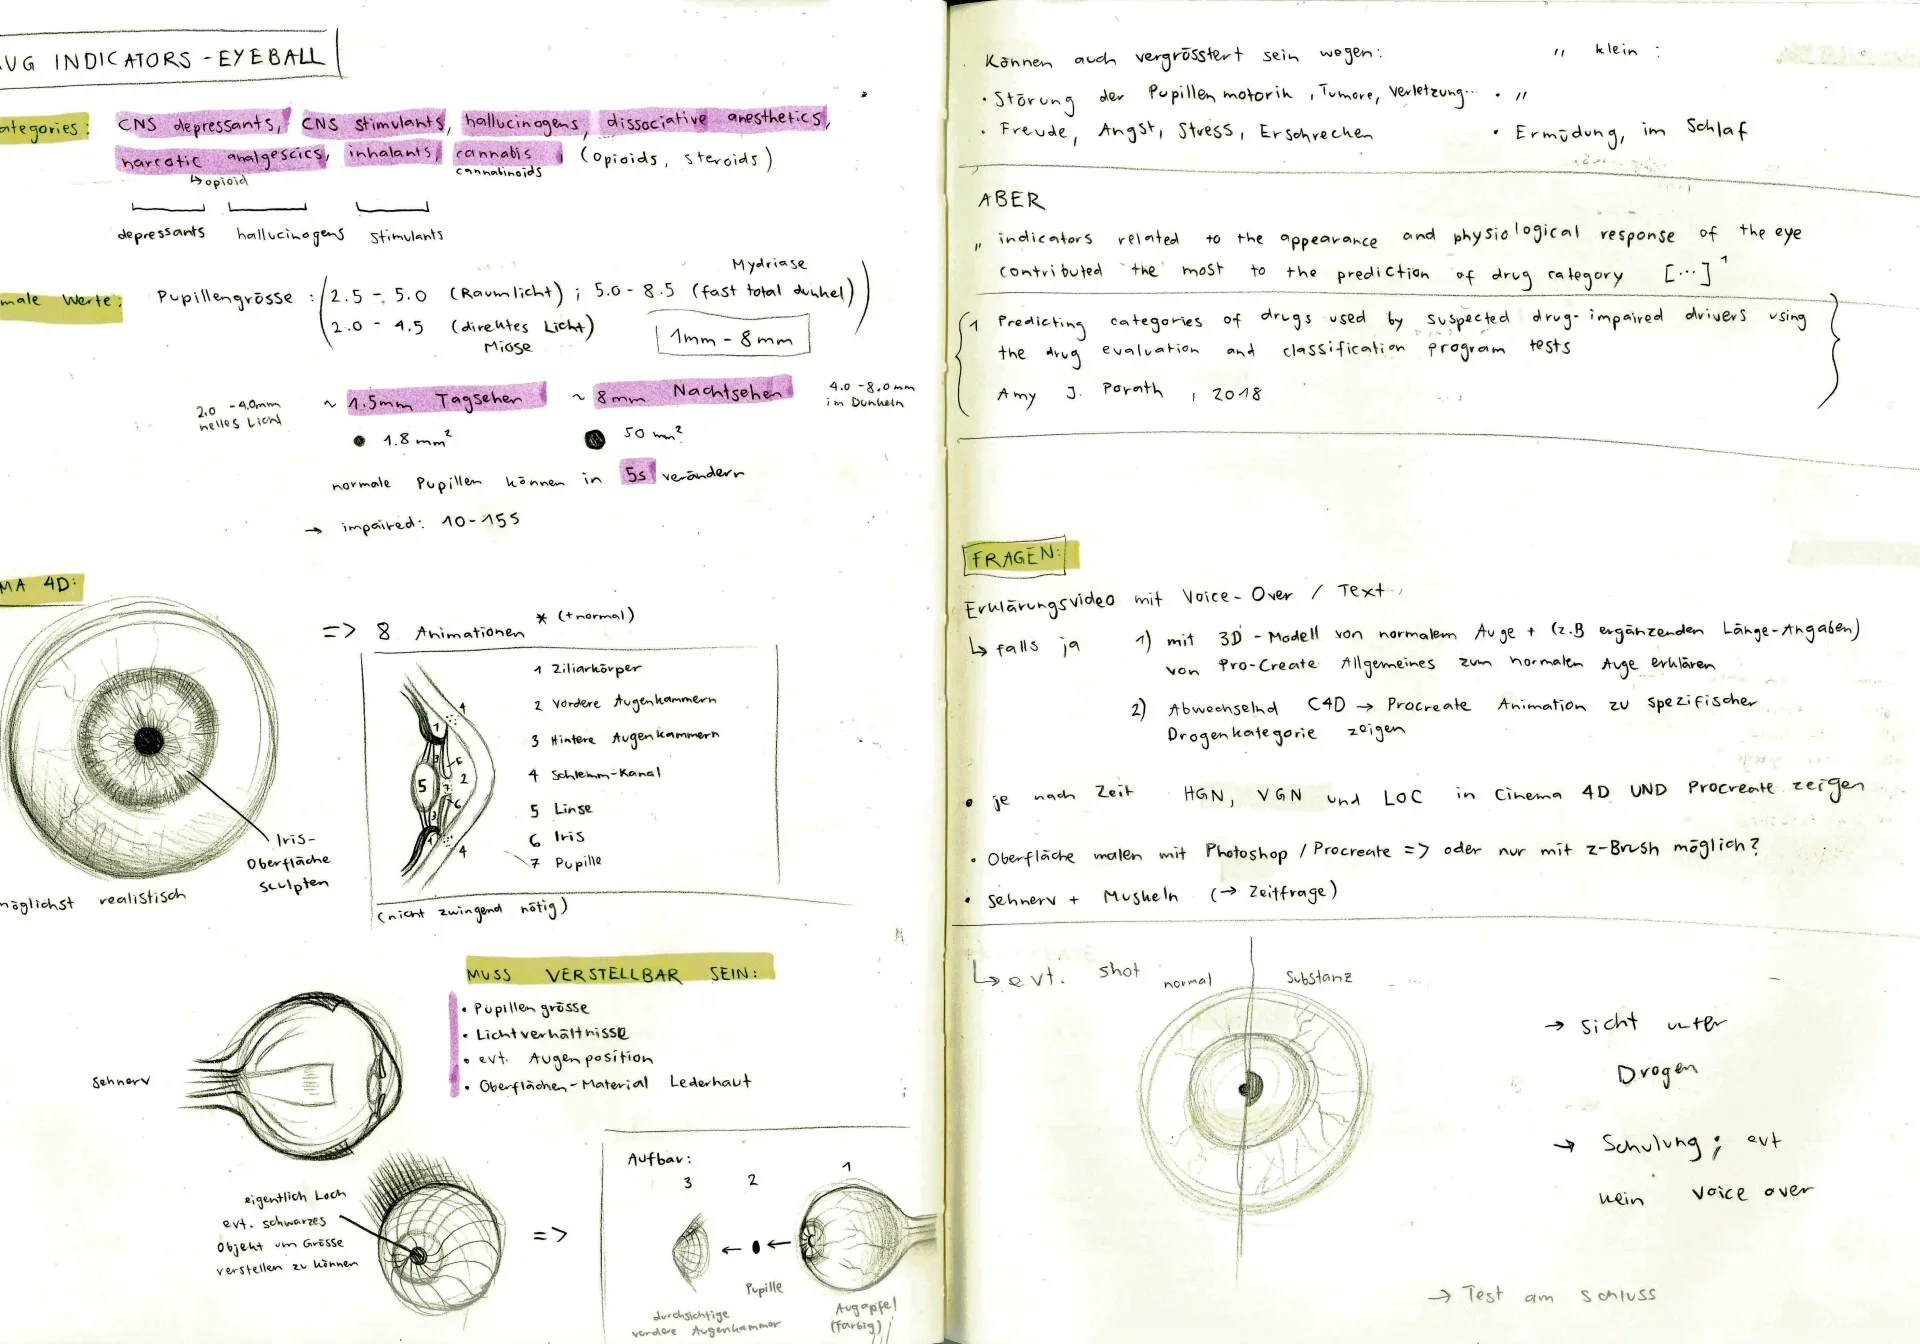 UG INDICATORS - EYEBALL
ategories: CNS depressants, CNS stimulants, hallucinogens, dissociative anesthetics,
narcotic analgescics, inhalants, cannabis (opioids, steroids)
↳ opioid
cannabinoids
depressants hallucinogens stimulants
Mydriase
male Werte: Pupillengrösse : 2.5 - 5.0 (Raumlicht) ; 5.0 - 8.5 (fast total dunkel)
2.0 - 4.5 (direktes Licht)
Miose
1mm - 8mm
2.0 - 4.0mm
helles Licht
~ 1.5mm Tagsehen ~ 8mm Nachtsehen
4.0 - 8.0mm
im Dunkeln
1.8 mm² 50 mm²
normale Pupillen können in 5s verändern
→ impaired: 10-15s
MA 4D:
=> 8 Animationen * (+normal)
1 Ziliarkörper
2 Vordere Augenkammern
3 Hintere Augenkammern
4 Schlemm-Kanal
5 Linse
6 Iris
7 Pupille
4
1
3
6
5
2
7
6
3
1
4
(nicht zwingend nötig)
Iris-
Oberfläche
sculpten
möglichst realistisch
MUSS VERSTELLBAR SEIN:
• Pupillengrösse
• Lichtverhältnisse
• evt. Augenposition
• Oberflächen-Material Lederhaut
Sehnerv
eigentlich Loch
evt. schwarzes
Objekt um Grösse
verstellen zu können
=>
Aufbau:
3 2 1
Pupille
durchsichtige
vordere Augenkammer
Augapfel
(farbig)
Können auch vergrösstert sein wegen:
• Störung der Pupillenmotorik, Tumore, Verletzung...
• Freude, Angst, Stress, Erschrecken
" klein :
• "
• Ermüdung, im Schlaf
ABER
" indicators related to the appearance and physiological response of the eye
contributed the most to the prediction of drug category [...]¹
1 Predicting categories of drugs used by suspected drug-impaired drivers using
the drug evaluation and classification program tests
Amy J. Porath , 2018
FRAGEN:
Erklärungsvideo mit Voice-Over / Text
↳ falls ja 1) mit 3D-Modell von normalem Auge + (z.B ergänzenden Länge-Angaben)
von Pro-Create Allgemeines zum normalen Auge erklären
2) Abwechselnd C4D → Procreate Animation zu spezifischer
Drogenkategorie zeigen
• je nach Zeit HGN, VGN und LOC in Cinema 4D UND Procreate zeigen
• Oberfläche malen mit Photoshop / Procreate => oder nur mit z-Brush möglich?
• Sehnerv + Muskeln (→ Zeitfrage)
↳ evt. shot normal Substanz
→ Sicht unter
Drogen
→ Schulung ; evt
kein voice over
→ Test am Schluss